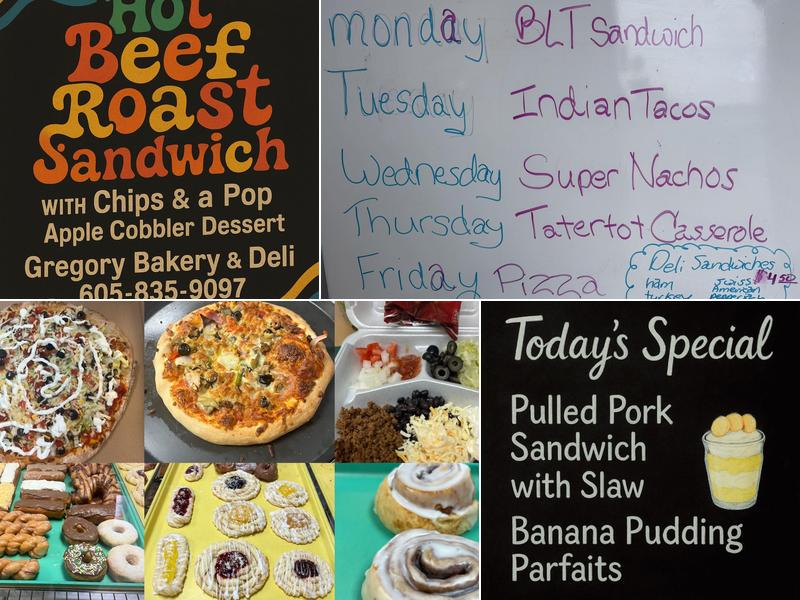 Hot
Beef
Roast
Sandwich
WITH Chips & a Pop
Apple Cobbler Dessert
Gregory Bakery & Deli
605-835-9097
monday BLT Sandwich
Tuesday Indian Tacos
Wednesday Super Nachos
Thursday Tatertot Casserole
Friday Pizza
Deli Sandwiches
$4.50
ham Swiss
turkey American
pepperjack
Today's Special
Pulled Pork
Sandwich
with Slaw
Banana Pudding
Parfaits